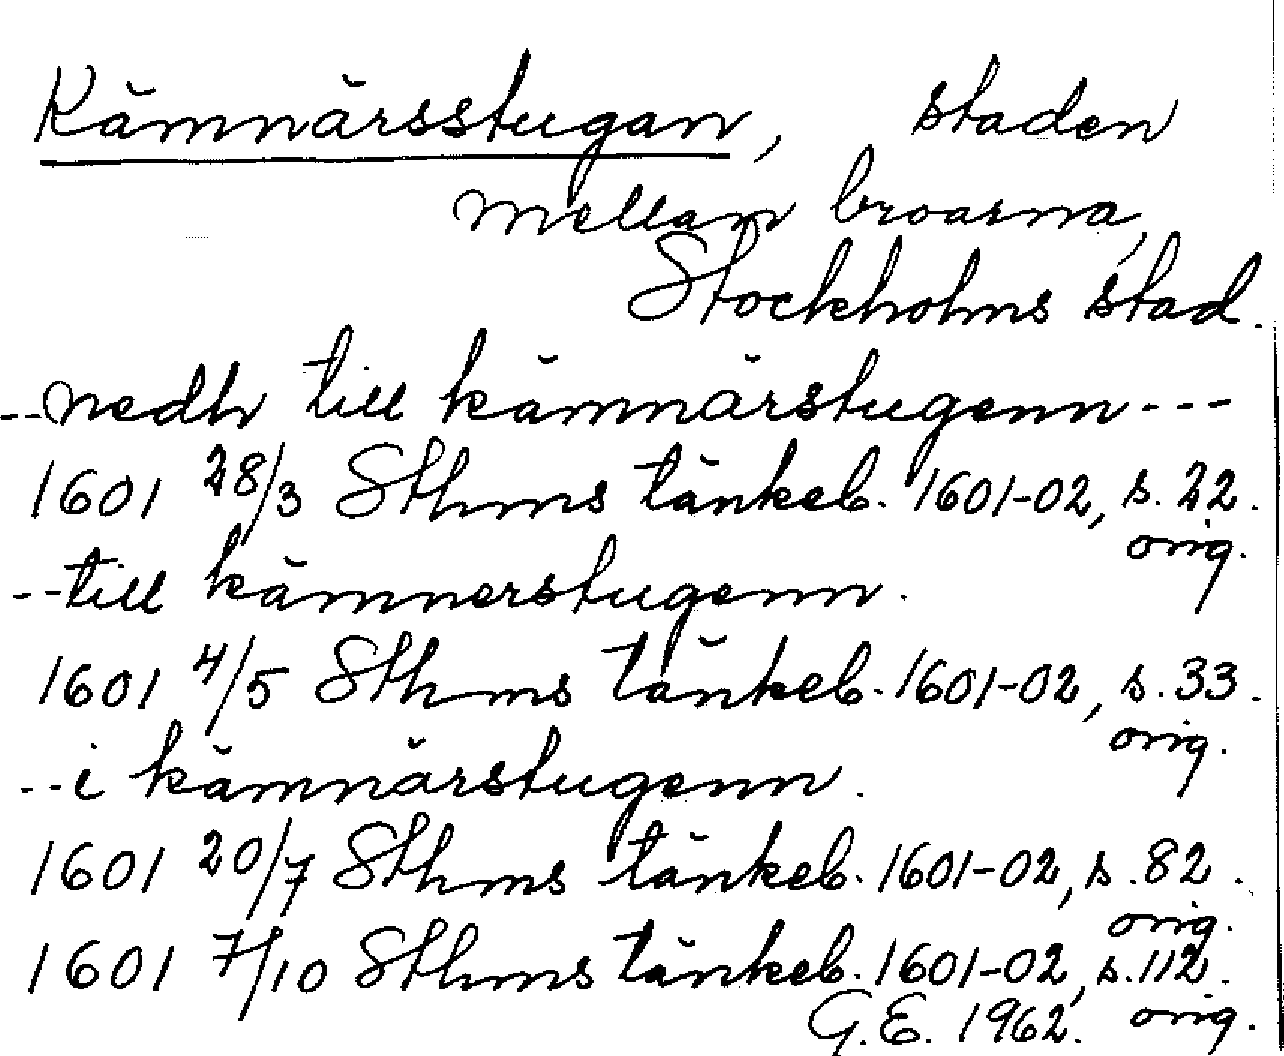 Kämnärsstugan, staden
mellan broarna,
Stockholms stad.
--nedh till kämnärstugenn---
1601 28/3 Sthms tänkeb. 1601-02, s. 22.
orig.
--till kämnerstugenn.
1601 4/5 Sthms tänkeb. 1601-02, s. 33.
orig.
--i kämnärstugenn.
1601 20/7 Sthms tänkeb. 1601-02, s. 82.
orig.
1601 7/10 Sthms tänkeb. 1601-02, s. 112.
G.E. 1962. orig.